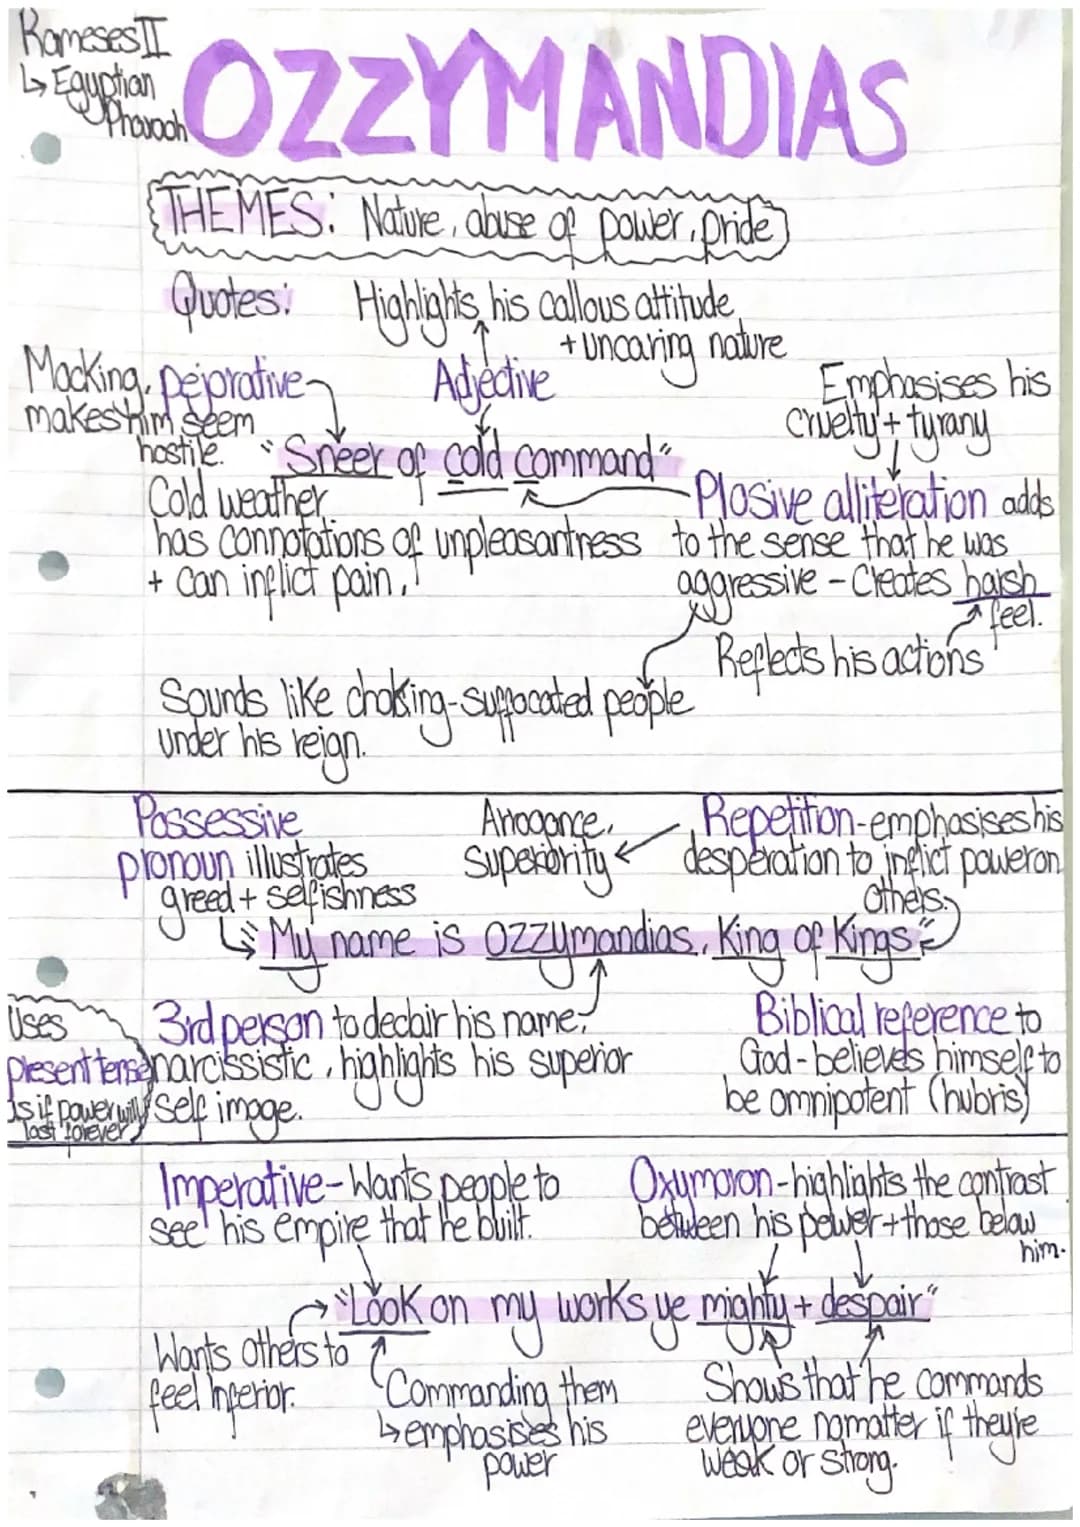 Rameses II
↳ Egyptian
Pharaoh
OZZYMANDIAS
THEMES: Nature, abuse of power, pride
Quotes:
Highlights his callous attitude
+ uncaring nature
Mocking, pejorative
makes him seem
hostile.
Adjective
Emphasises his
cruelty + tyrany
"Sneer of cold command"
Cold weather
has connotations of unpleasantness
+ can inflict pain.
Plosive alliteration adds
to the sense that he was
aggressive - Creates harsh
feel.
Reflects his actions
Sounds like choking - suffocated people
under his reign.
Possessive
pronoun illustrates
greed + selfishness
Arrogance,
Superiority
Repetition - emphasises his
desperation to inflict power on
others.
"My name is Ozzymandias, King of Kings"
Uses
present tense
as if power will
last forever
3rd person to declair his name,
narcissistic, highlights his superior
self image.
Biblical reference to
God - believes himself to
be omnipotent (hubris)
Imperative - Wants people to
see his empire that he built.
Oxymoron - highlights the contrast
between his power + those below
him.
"Look on my works ye mighty + despair"
Wants others to
feel Inferior.
Commanding them
↳ emphasises his
power
Shows that he commands
everyone no matter if they're
weak or strong.